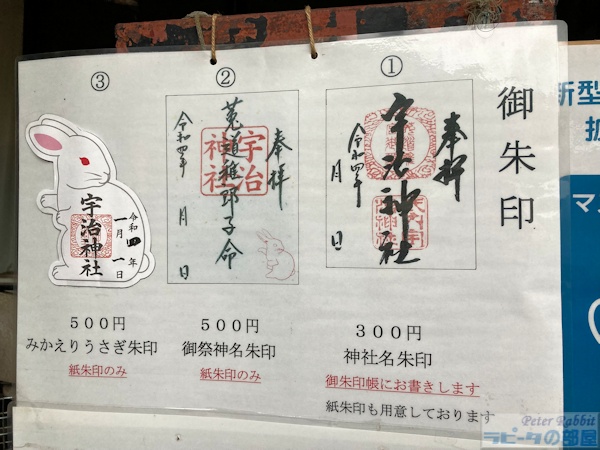 御朱印
①
奉拝
宇治神社
令和四年 月 日
300円
神社名朱印
御朱印帳にお書きします
紙朱印も用意しております
②
奉拝
宇治神社
菟道稚郎子命
令和四年 月 日
500円
御祭神名朱印
紙朱印のみ
③
宇治神社
令和四年
一月一日
500円
みかえりうさぎ朱印
紙朱印のみ
新型
拡
マ
Peter Rabbit
ラピータの部屋